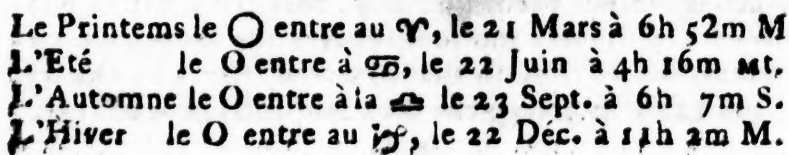 Le Printems le ◯ entre au ♈, le 21 Mars à 6h 52m M
L'Eté le O entre à ♋, le 22 Juin à 4h 16m Mt.
L'Automne le O entre à la ♎ le 23 Sept. à 6h 7m S.
L'Hiver le O entre au ♑, le 22 Déc. à 11h 2m M.